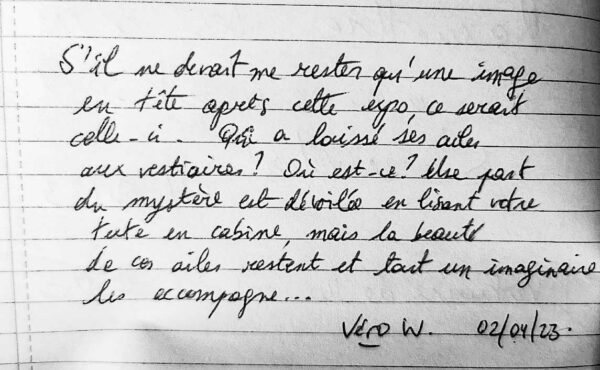 S'il ne devait me rester qu'une image
en tête après cette expo, ce serait
celle-ci. Qui a laissé ses ailes
aux vestiaires ? Où est-ce ? Une part
du mystère est dévoilée en lisant votre
texte en cabine, mais la beauté
de ces ailes restent et tout un imaginaire
les accompagne...
Véro W. 02/04/23.